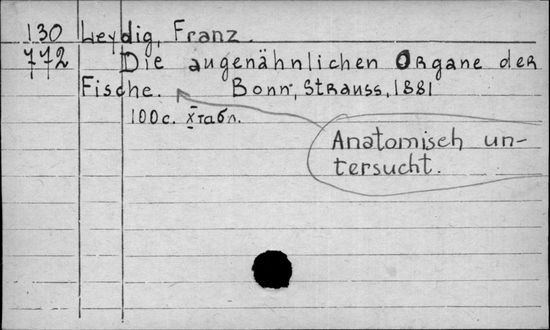 130 Leydig, Franz.
772 Die augenähnlichen Organe der
Fische. Bonn, Strauss, 1881
100 с. X табл.
Anatomisch un-
tersucht.